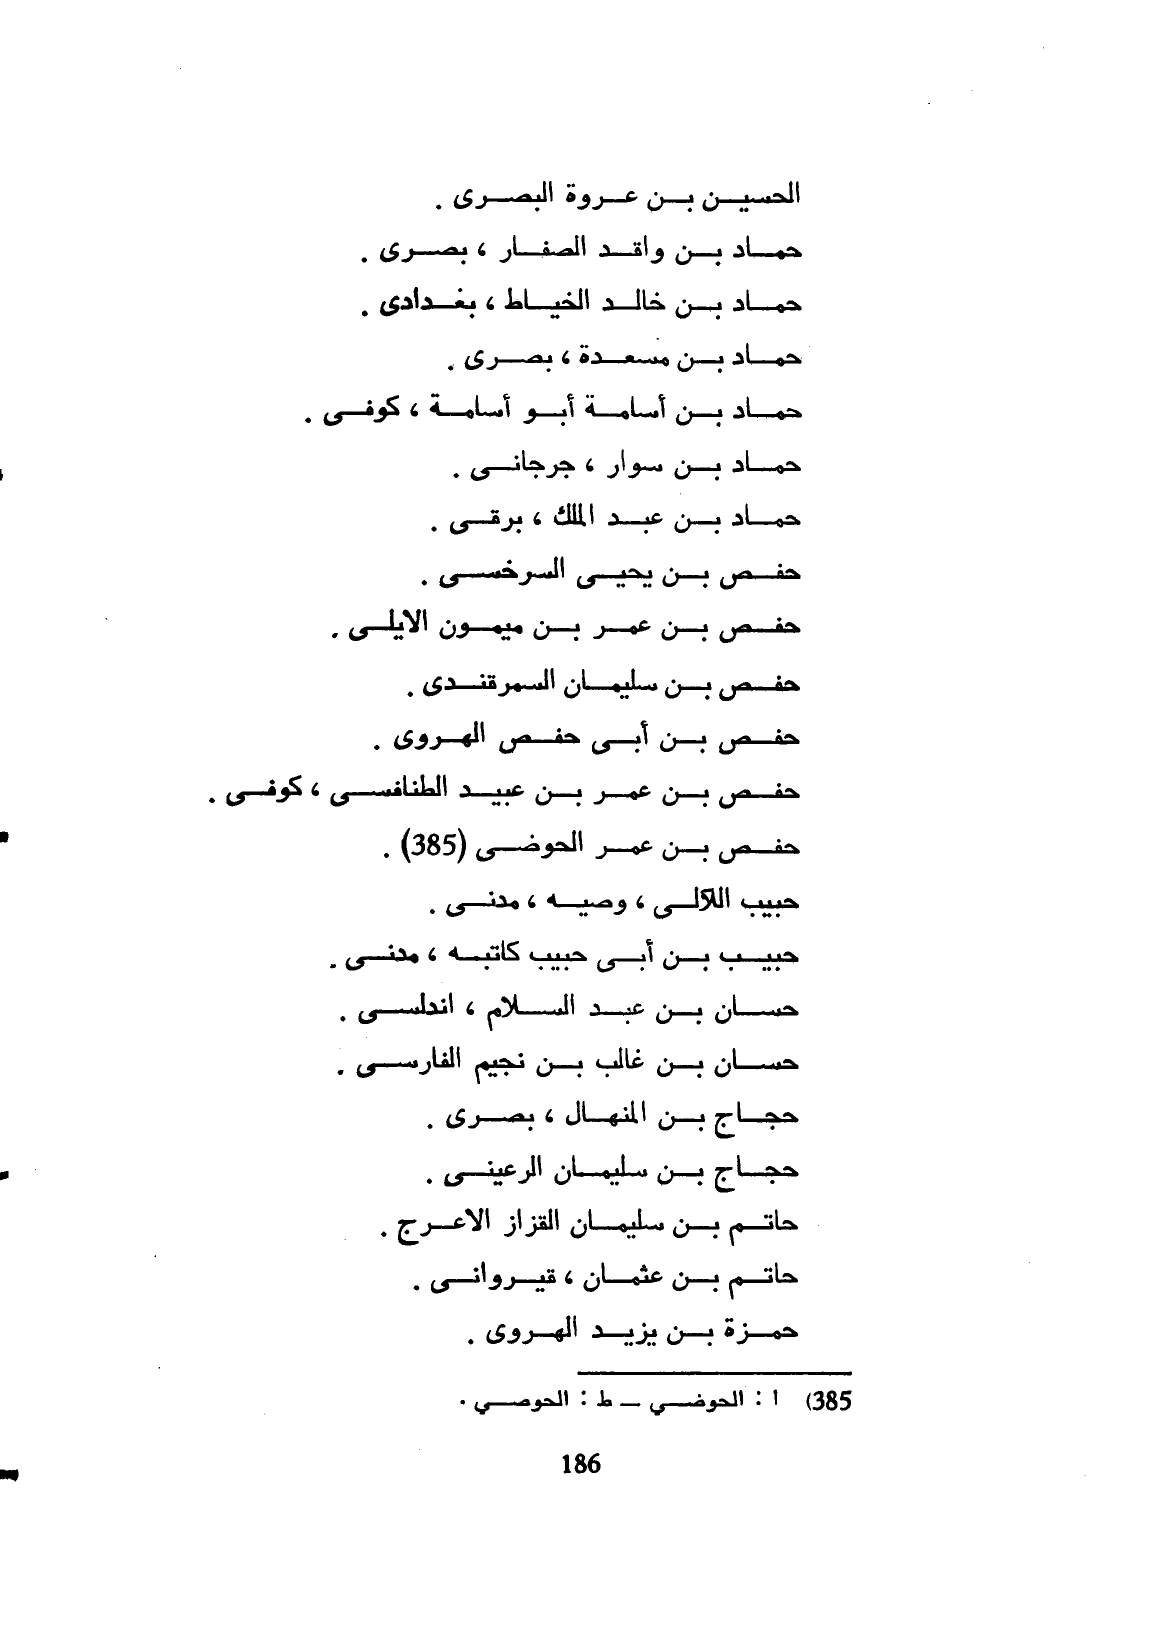 الحسين بن عروة البصرى .
حماد بن واقد الصفار ، بصرى .
حماد بن خالد الخياط ، بغدادى .
حماد بن مسعدة ، بصرى .
حماد بن أسامة أبو أسامة ، كوفى .
حماد بن سوار ، جرجانى .
حماد بن عبد الملك ، برقى .
حفص بن يحيى السرخسى .
حفص بن عمر بن ميمون الايلى .
حفص بن سليمان السمرقندى .
حفص بن أبى حفص الهروى .
حفص بن عمر بن عبيد الطنافسى ، كوفى .
حفص بن عمر الحوضى (385) .
حبيب اللآلى ، وصيه ، مدنى .
حبيب بن أبى حبيب كاتبه ، مدنى .
حسان بن عبد السلام ، اندلسى .
حسان بن غالب بن نجيم الفارسى .
حجاج بن المنهال ، بصرى .
حجاج بن سليمان الرعينى .
حاتم بن سليمان القزاز الاعرج .
حاتم بن عثمان ، قيروانى .
حمزة بن يزيد الهروى .
385) أ : الحوضي — ط : الحوصي .
186